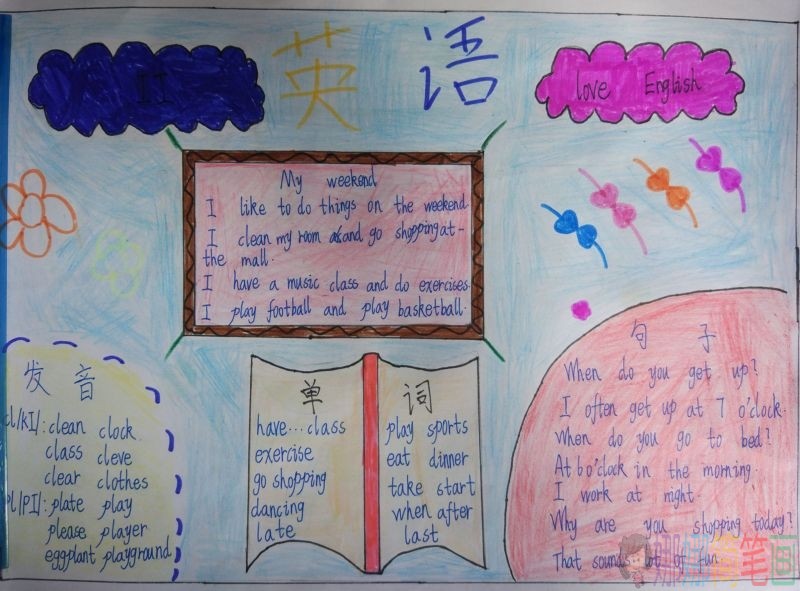 II
英语
love English
My weekend
I like to do things on the weekend
I clean my room and go shopping at-
the mall.
I have a music class and do exercises.
I play football and play basketball.
发音
cl/kl/: clean clock
class cleve
clear clothes
pl/pl/: plate play
please player
eggplant playground
单词
have...class
exercise
go shopping
dancing
late
play sports
eat dinner
take start
when after
last
句子
When do you get up?
I often get up at 7 o'clock.
When do you go to bed?
At 6 o'clock in the morning.
I work at night.
Why are you shopping today?
That sounds lot of fun